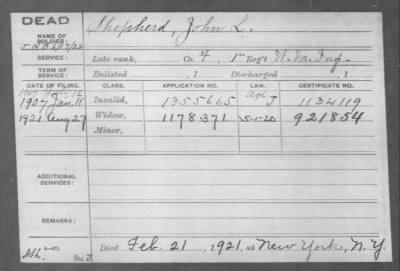 DEAD
NAME OF SOLDIER:
Shepherd, John L.
SERVICE:
Late rank, Co. F, 1" Reg't W. Va. Inf.
TERM OF SERVICE:
Enlisted , 1 Discharged , 1
DATE OF FILING. CLASS. APPLICATION NO. LAW. CERTIFICATE NO.
1907 Jan. 11 Invalid, 1355665 Age J 1134119
1921 Aug 27 Widow, 1178371 5-1-20 921854
Minor,
ADDITIONAL SERVICES:
REMARKS:
Died Feb. 21, 1921, at New York, N.Y.